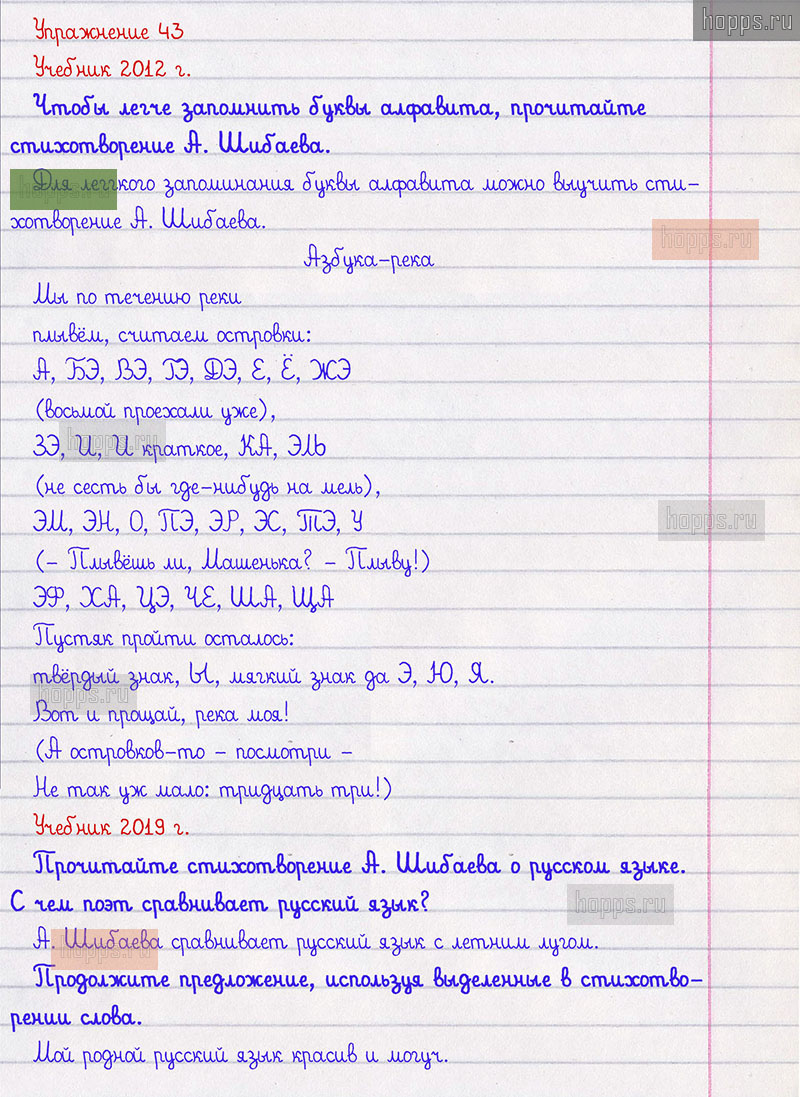 hopps.ru
Упражнение 43
Учебник 2012 г.
Чтобы легче запомнить буквы алфавита, прочитайте
стихотворение А. Шибаева.
Для легкого запоминания буквы алфавита можно выучить сти-
хотворение А. Шибаева.
hopps.ru
hopps.ru
Азбука-река
Мы по течению реки
плывём, считаем островки:
А, БЭ, ВЭ, ГЭ, ДЭ, Е, Ё, ЖЭ
(восьмой проехали уже),
ЗЭ, И, И краткое, КА, ЭЛЬ
hopps.ru
(не сесть бы где-нибудь на мель),
ЭМ, ЭН, О, ПЭ, ЭР, ЭС, ТЭ, У
hopps.ru
(- Плывёшь ли, Машенька? - Плыву!)
ЭФ, ХА, ЦЭ, ЧЕ, ША, ЩА
Пустяк пройти осталось:
твёрдый знак, Ы, мягкий знак да Э, Ю, Я.
hopps.ru
Вот и прощай, река моя!
(А островков-то - посмотри -
Не так уж мало: тридцать три!)
Учебник 2019 г.
Прочитайте стихотворение А. Шибаева о русском языке.
С чем поэт сравнивает русский язык?
hopps.ru
А. Шибаева сравнивает русский язык с летним лугом.
hopps.ru
Продолжите предложение, используя выделенные в стихотво-
рении слова.
Мой родной русский язык красив и могуч.